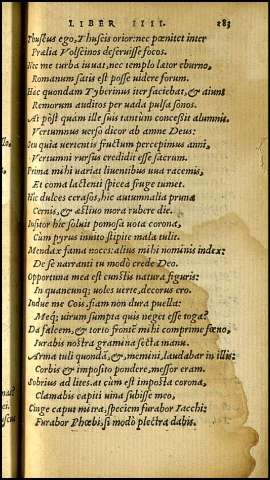 LIBER IIII. 283
Thuscus ego, Thuscis orior: nec pœnitet inter
Prælia Volscinos deseruisse focos.
Nec me turba iuuat, nec templo lætor eburno,
Romanum satis est posse uidere forum.
Hac quondam Tyberinus iter faciebat, & aiunt
Remorum auditos per uada pulsa sonos.
At pòst quàm ille suis tantùm concessit alumnis,
Vertumnus uerso dicor ab amne Deus:
Seu quia uertentis fructum percepimus anni,
Vertumni rursus credidit esse sacrum.
Prima mihi uariat liuentibus uua racemis,
Et coma lactenti spicea fruge tumet.
Hic dulces cerasos, hic autumnalia pruna
Cernis, & æstiuo mora rubere die.
Insitor hic soluit pomosa uota corona,
Cùm pyrus inuito stipite mala tulit.
Mendax fama noces: alius mihi nominis index:
De se narranti tu modò crede Deo.
Opportuna mea est cunctis natura figuris:
In quancunq; uoles uerte, decorus ero.
Indue me Cois, fiam non dura puella:
Meq; uirum sumpta quis neget esse toga?
Da falcem, & torto frontẽ mihi comprime fœno,
Iurabis nostra gramina secta manu.
Arma tuli quondã, &, memini, laudabar in illis:
Corbis & imposito pondere, messor eram.
Sobrius ad lites. at cùm est imposta corona,
Clamabis capiti uina subisse meo,
Cinge caput mitra, speciem furabor Iacchi:
Furabor Phœbi, si modò plectra dabis.